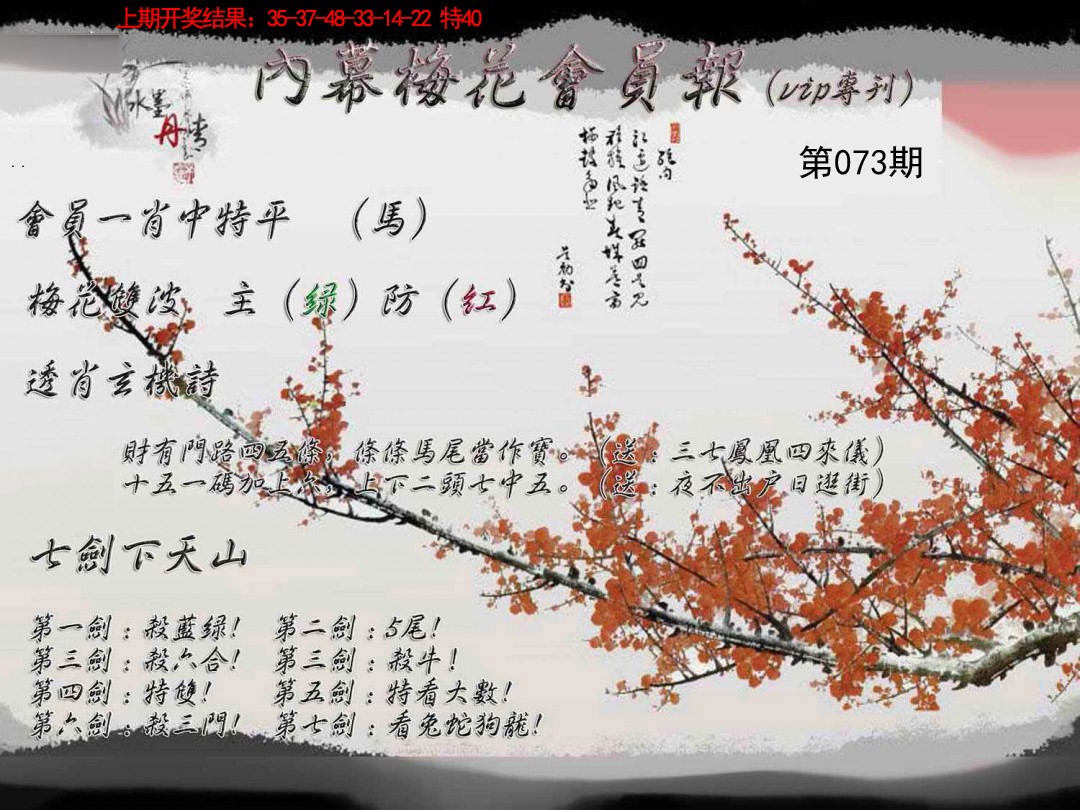 上期开奖结果：35-37-48-33-14-22 特40
內幕梅花會員報（vip專刊）
水墨丹青
第073期
會員一肖中特平　（馬）
梅花雙波　主（绿）防（红）
透肖玄機詩
財有門路四五條，條條馬尾當作寶。（送：三七鳳凰四來儀）
十五一碼加上六，上下二頭七中五。（送：夜不出户日逛街）
七劍下天山
第一劍：殺藍绿！　第二劍：5尾！
第三劍：殺六合！　第三劍：殺牛！
第四劍：特雙！　第五劍：特看大數！
第六劍：殺三門！　第七劍：看兔蛇狗龍！